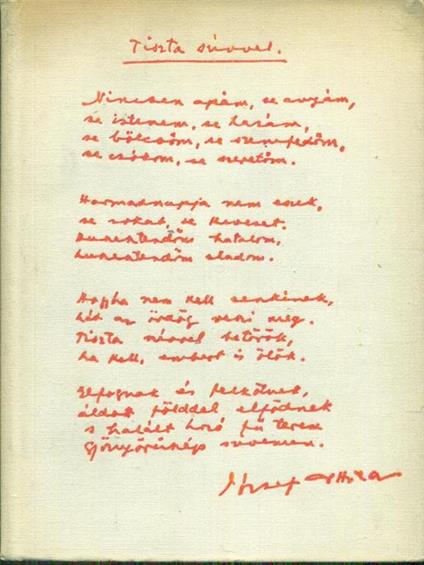 Tiszta szívvel.
Nincsen apám, se anyám,
se istenem, se hazám,
se bölcsőm, se szemfedőm,
se csókom, se szeretőm.
Harmadnapja nem eszek,
se sokat, se keveset.
Húszesztendőm hatalom,
húszesztendőm eladom.
Hogyha nem kell senkinek,
hát az ördög veszi meg.
Tiszta szívvel betörök,
ha kell, embert is ölök.
Elfognak és felkötnek,
áldott földdel elfödnek
s halált hozó fű terem
gyönyörűszép szívemen.
József Attila